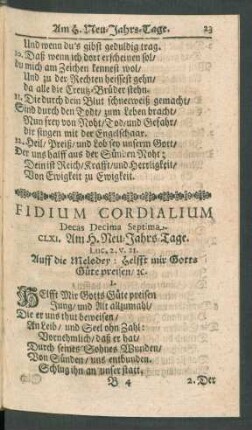 Am H. Neu-Jahrs-Tage. 23
Und wenn du's gibst geduldig trag.
20. Daß wenn ich dort erscheinen sol/
du mich am Zeichen kennest wol/
Und zu der Rechten heissest gehn/
da alle die Creutz-Brüder stehn.
21. Die durch dein Blut schneeweiß gemacht/
Sind durch den Todt/ zum Leben bracht/
Nun frey von Noht/ Tod/ und Gefahr/
dir singen mit der Engelschaar.
22. Heil/ Preiß/ und Lob sey unserm Gott/
Der uns halff aus der Sünden Noht;
Dein ist Reich/ Krafft/ und Herrligkeit/
Von Ewigkeit zu Ewigkeit.
FIDIUM CORDIALIUM
Decas Decima Septima.
CLXI. Am H. Neu-Jahrs-Tage.
Luc. 2. v. 21.
Auff die Melodey: Helfft mir Gotts
Güte preisen/ ꝛc.
1.
HElfft Mir Gotts Güte preisen
Jung/ und Alt allzumahl/
Die er uns thut beweisen/
An Leib/ und Seel ohn Zahl:
Vornehmlich/ daß er hat/
Durch seines Sohnes Wunden/
Von Sünden/ uns entbunden.
Schlug ihn an unser statt.
B 4 2. Der